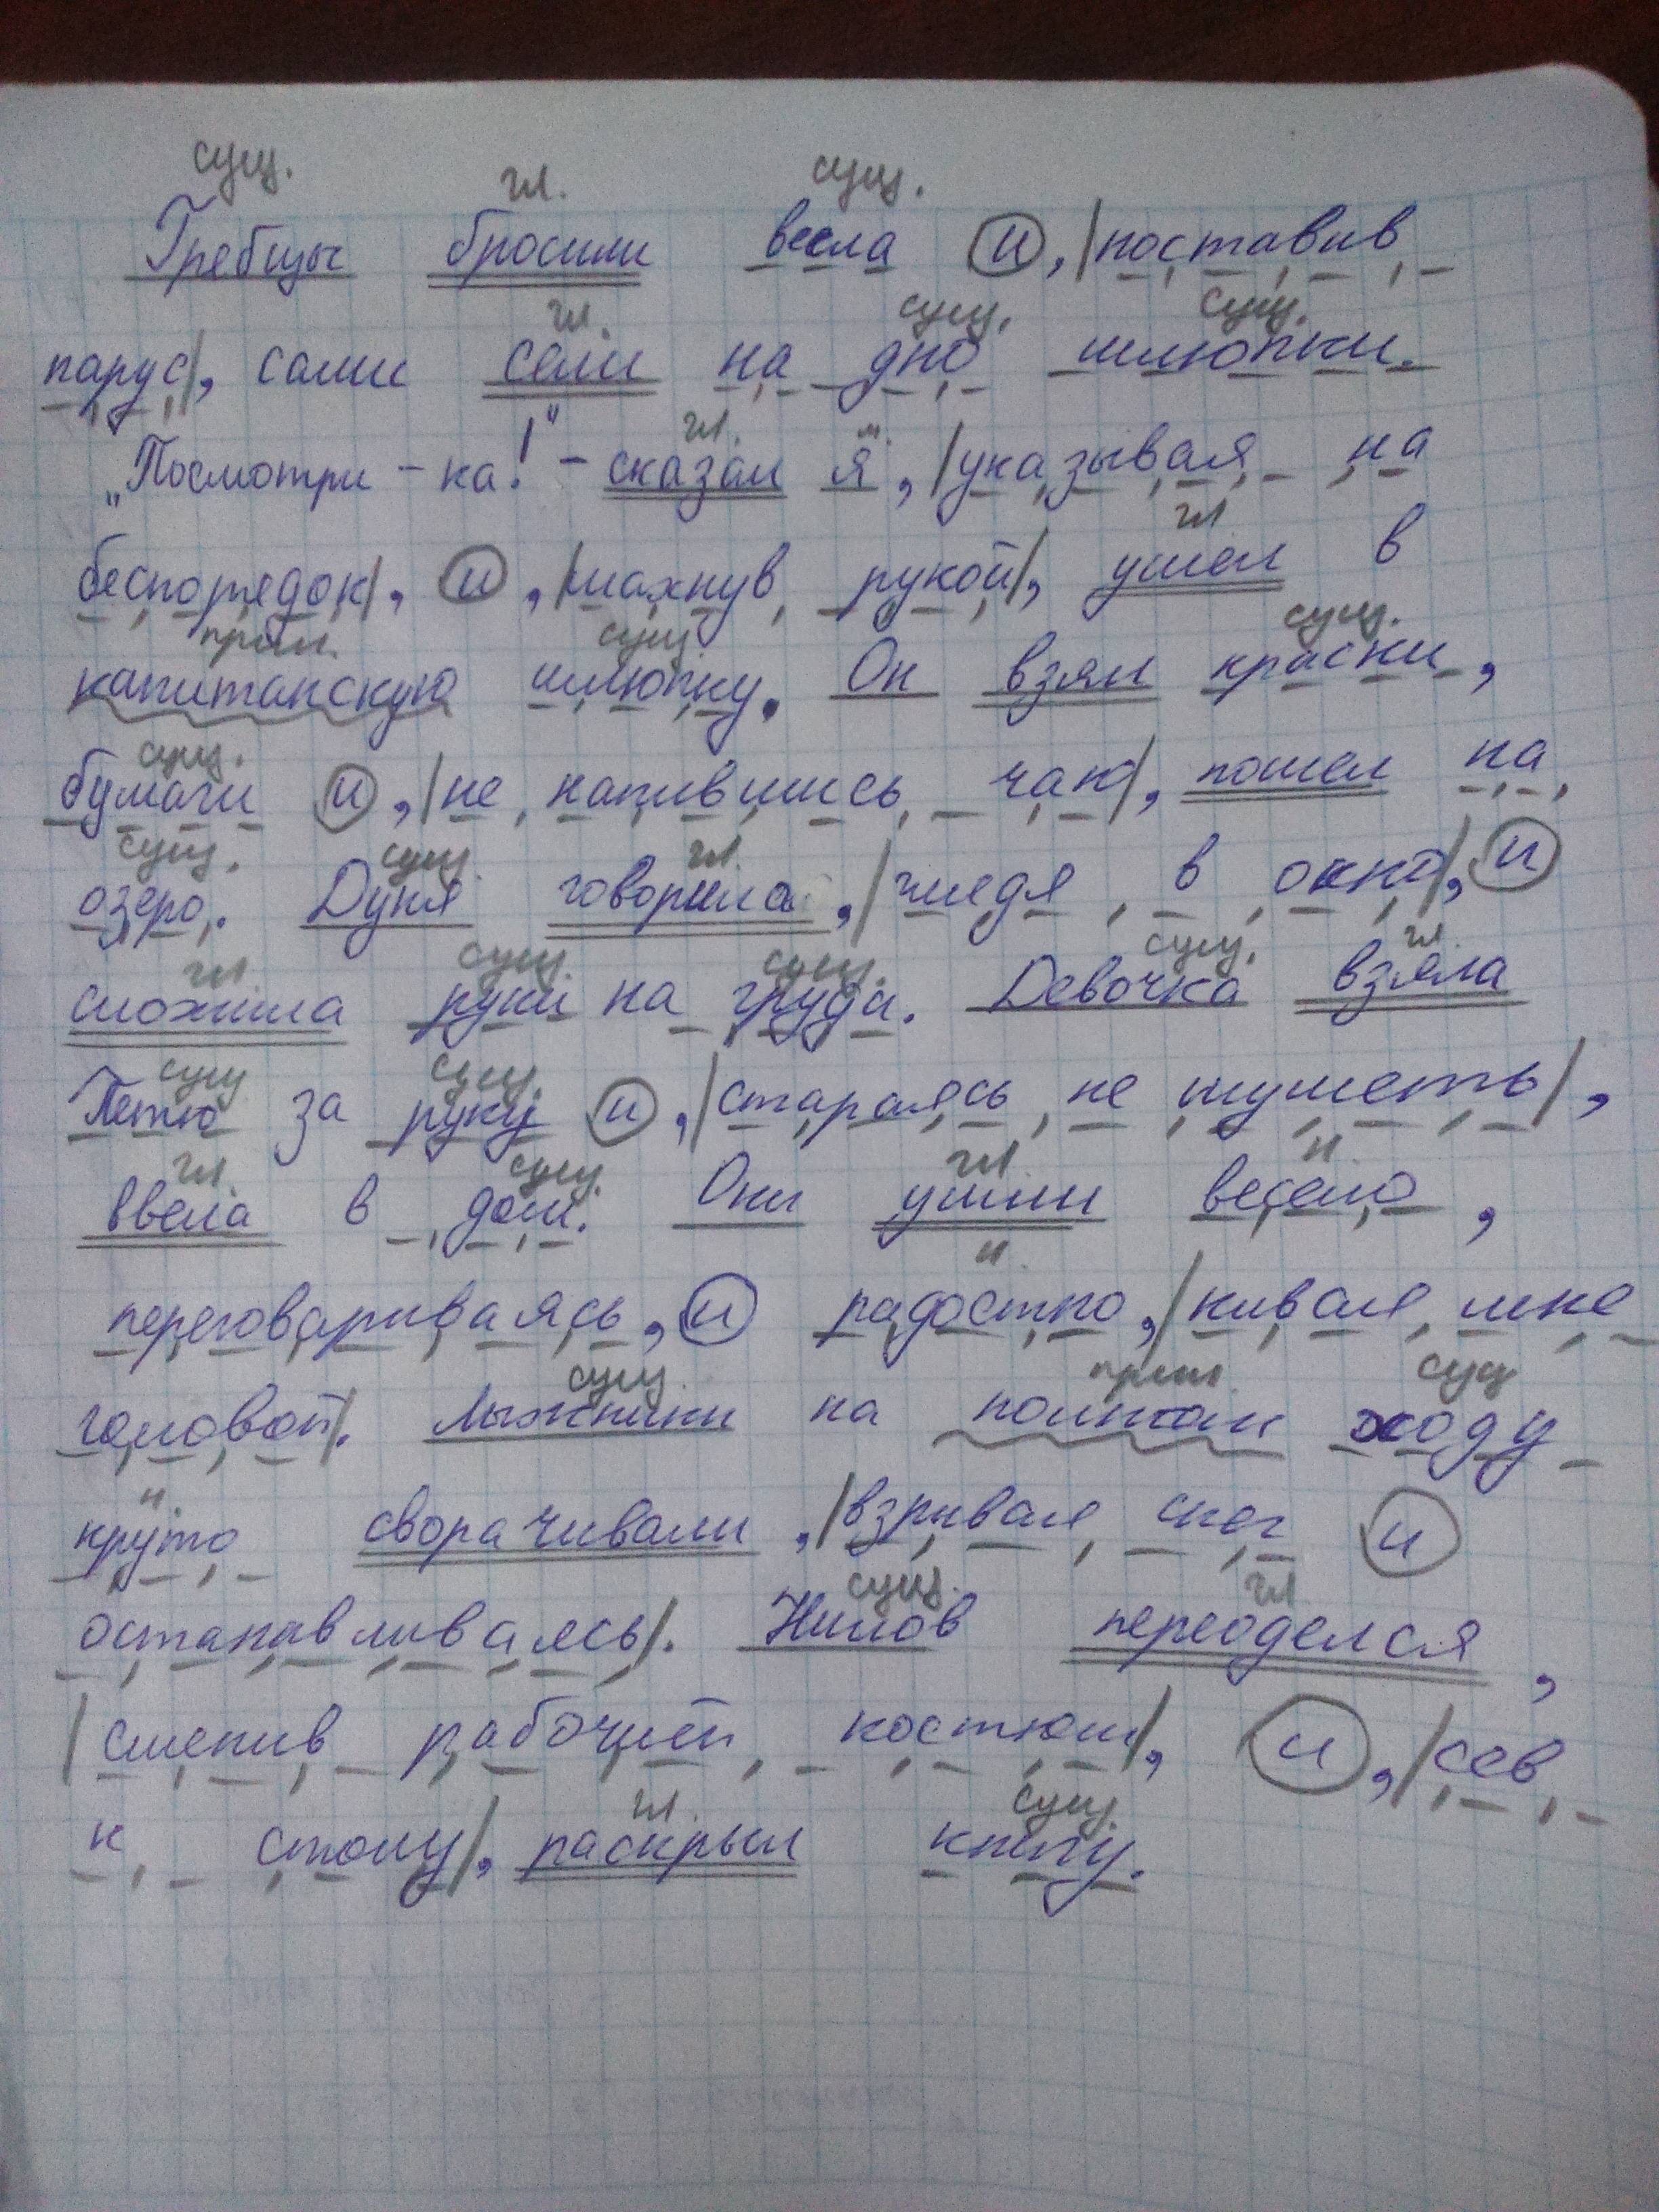 сущ. гл. сущ.
Гребцы бросили весла и, |поставив
гл. сущ. сущ.
парус|, сами сели на дно шлюпки.
гл. м.
„Посмотри-ка!" - сказал я, |указывая на
гл
беспорядок|, и, |махнув рукой|, ушел в
прил. сущ. сущ.
капитанскую шлюпку. Он взял краски,
сущ.
бумаги и, |не напившись чаю|, пошел на
сущ. сущ. гл.
озеро. Дуня говорила, |глядя в окно|, и
гл сущ. сущ. сущ. гл.
сложила руки на груди. Девочка взяла
сущ сущ.
Петю за руку и, |стараясь не шуметь|,
гл. сущ. гл. н.
ввела в дом. Они ушли весело,
н.
переговариваясь, и радостно, |кивая мне
сущ. прил. сущ
головой|. Лыжники на полном ходу
н.
круто сворачивали, |взрывая снег и
сущ. гл
останавливаясь|. Нилов переоделся,
|сменив рабочий костюм|, и, |сев
гл. сущ.
к столу|, раскрыл книгу.